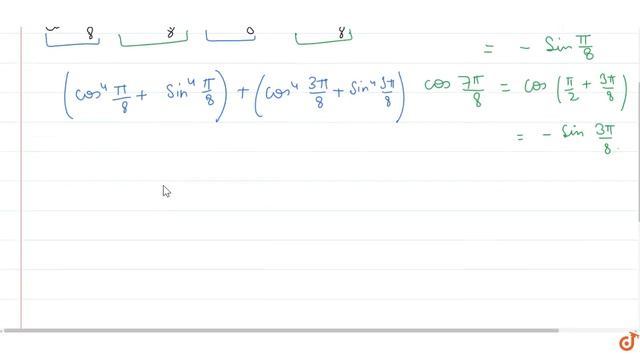 8 8 8
= - Sin π/8
(cos⁴ π/8 + Sin⁴ π/8) + (cos⁴ 3π/8 + Sin⁴ 3π/8) cos 7π/8 = cos (π/2 + 3π/8)
= - Sin 3π/8